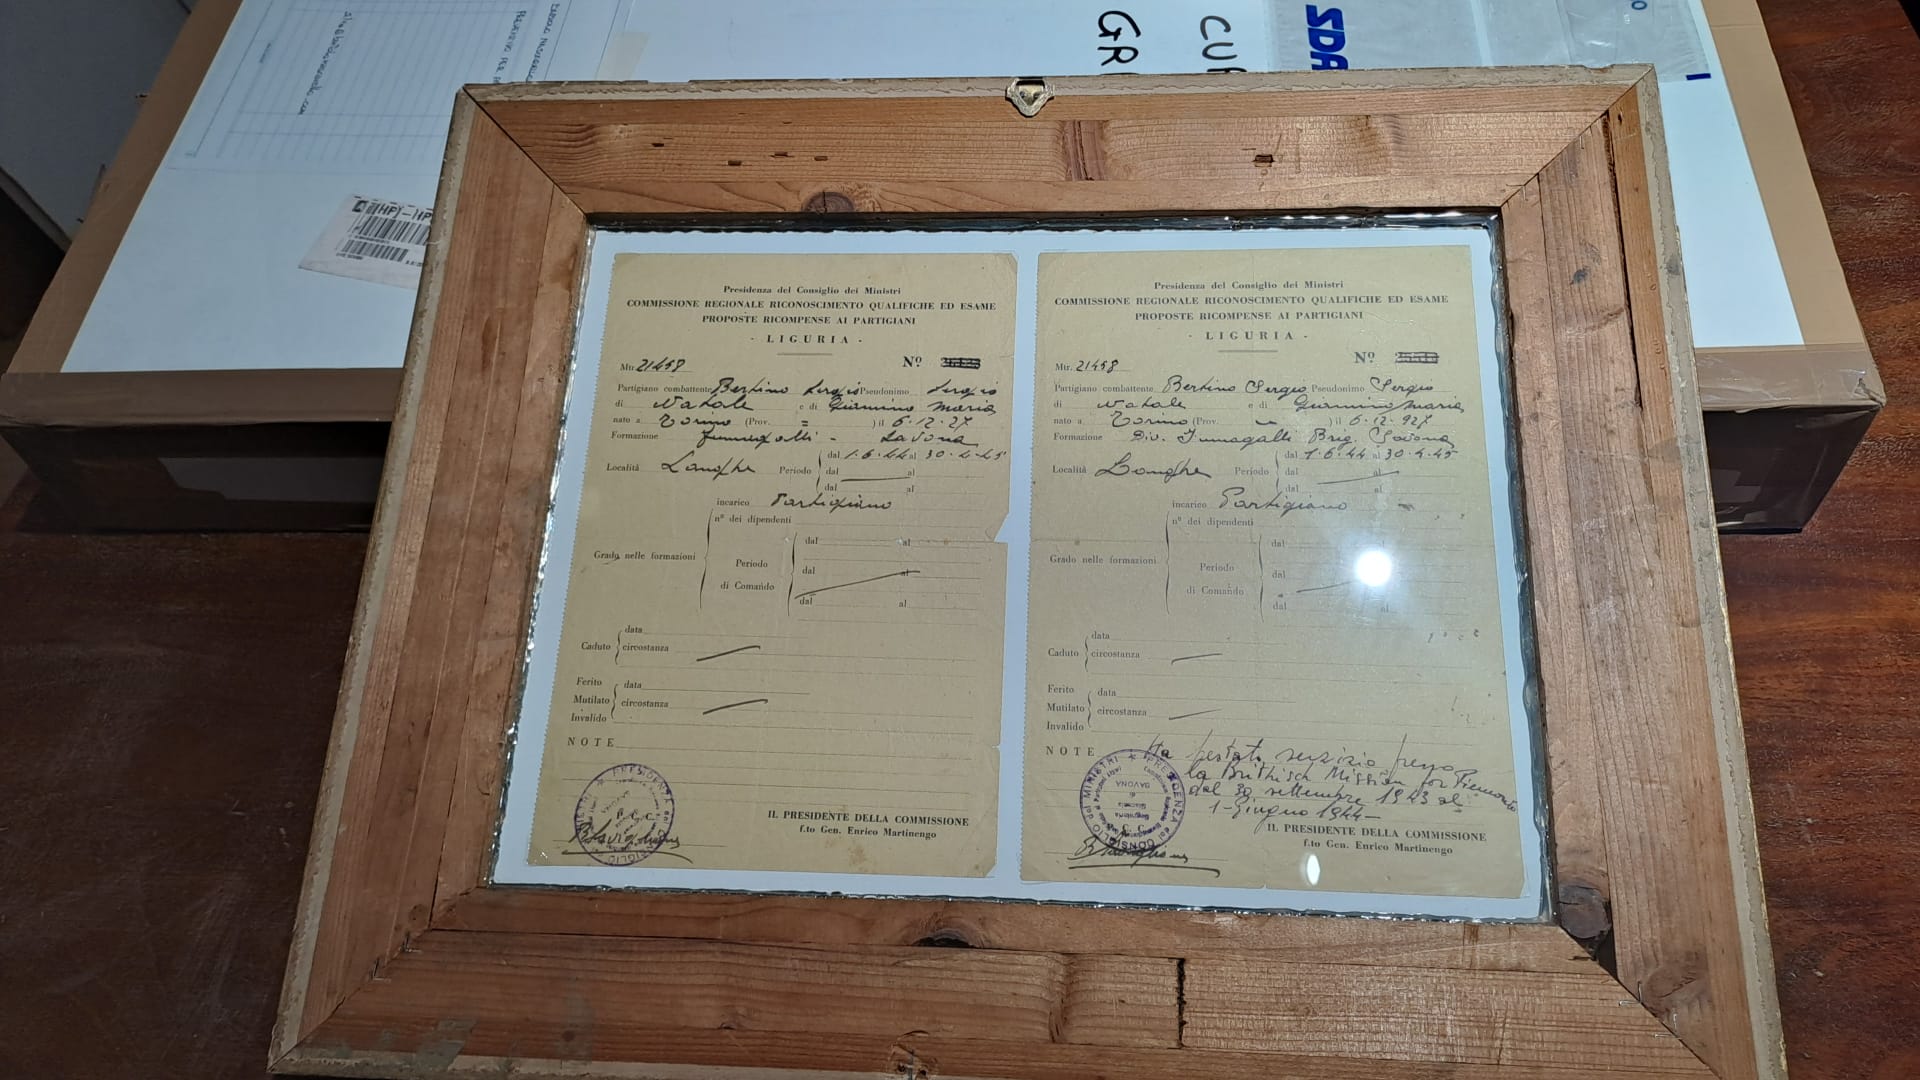 CU
GR
SDA
Presidenza del Consiglio dei Ministri
COMMISSIONE REGIONALE RICONOSCIMENTO QUALIFICHE ED ESAME
PROPOSTE RICOMPENSE AI PARTIGIANI
- LIGURIA -
Mtr. 21458 Nº
Partigiano combattente Bertino Sergio Pseudonimo Sergio
di Natale e di Giannino Maria
nato a Torino (Prov. = ) il 6.12.27
Formazione Fumagalli - Savona
dal 1.6.44 al 30.4.45
Località Langhe Periodo dal al
dal al
incarico Partigiano
nº dei dipendenti
dal al
Grado nelle formazioni
Periodo
dal al
di Comando
dal al
data
Caduto circostanza
Ferito data
Mutilato circostanza
Invalido
NOTE
IL PRESIDENTE DELLA COMMISSIONE
f.to Gen. Enrico Martinengo
Presidenza del Consiglio dei Ministri
COMMISSIONE REGIONALE RICONOSCIMENTO QUALIFICHE ED ESAME
PROPOSTE RICOMPENSE AI PARTIGIANI
- LIGURIA -
Mtr. 21458 Nº
Partigiano combattente Bertino Sergio Pseudonimo Sergio
di Natale e di Giannino Maria
nato a Torino (Prov. ) il 6.12.927
Formazione Div. Fumagalli Brig. Savona
dal 1.6.44 al 30.4.45
Località Langhe Periodo dal al
dal al
incarico Partigiano
nº dei dipendenti
dal
Grado nelle formazioni
Periodo
dal
di Comando
dal al
data
Caduto circostanza
Ferito data
Mutilato circostanza
Invalido
NOTE Ha prestato servizio presso
la Brithisch Mission for Piemonte
dal 30 settembre 1943 al
1-Giugno 1944-
IL PRESIDENTE DELLA COMMISSIONE
f.to Gen. Enrico Martinengo